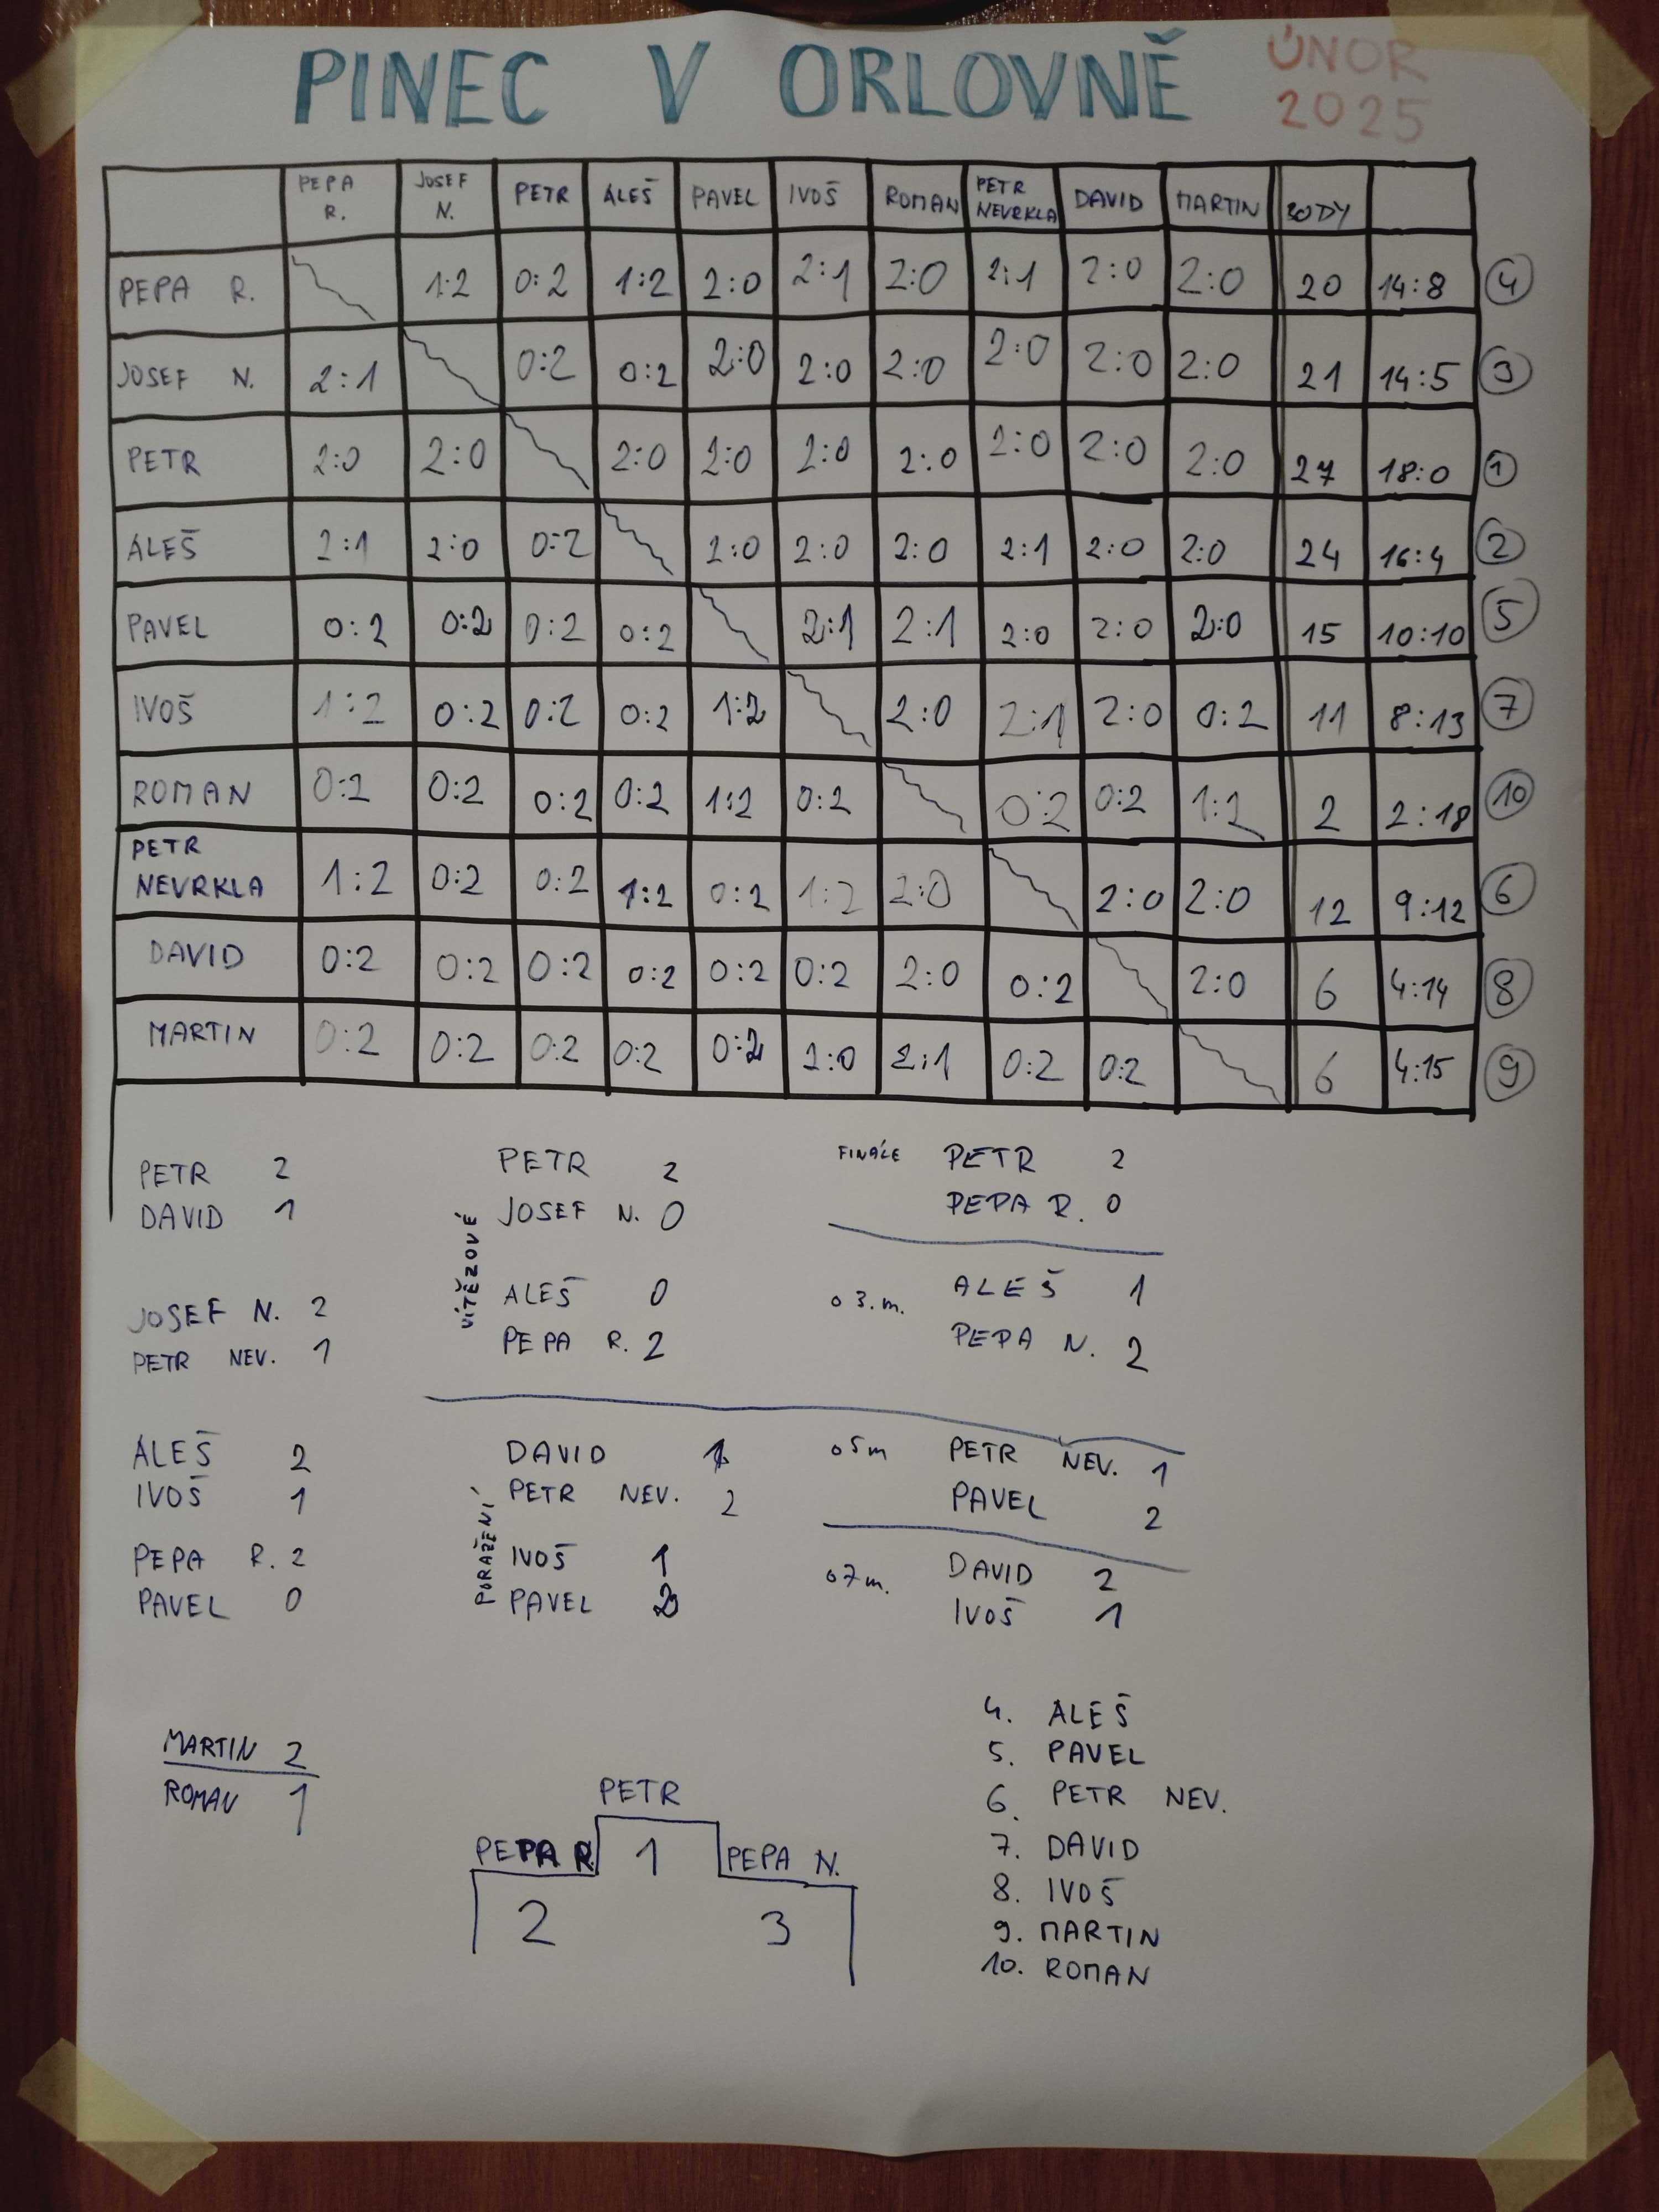 PINEC V ORLOVNĚ ÚNOR 2025
PEPA R. JOSEF N. PETR ALEŠ PAVEL IVOŠ ROMAN PETR NEVRKLA DAVID MARTIN BODY
PEPA R. 1:2 0:2 1:2 2:0 2:1 2:0 2:1 2:0 2:0 20 14:8 4
JOSEF N. 2:1 0:2 0:2 2:0 2:0 2:0 2:0 2:0 2:0 21 14:5 3
PETR 2:0 2:0 2:0 2:0 2:0 2:0 2:0 2:0 2:0 27 18:0 1
ALEŠ 2:1 2:0 0:2 2:0 2:0 2:0 2:1 2:0 2:0 24 16:4 2
PAVEL 0:2 0:2 0:2 0:2 2:1 2:1 2:0 2:0 2:0 15 10:10 5
IVOŠ 1:2 0:2 0:2 0:2 1:2 2:0 2:1 2:0 0:2 11 8:13 7
ROMAN 0:2 0:2 0:2 0:2 1:2 0:2 0:2 0:2 1:2 2 2:18 10
PETR NEVRKLA 1:2 0:2 0:2 1:2 0:2 1:2 2:0 2:0 2:0 12 9:12 6
DAVID 0:2 0:2 0:2 0:2 0:2 0:2 2:0 0:2 2:0 6 4:14 8
MARTIN 0:2 0:2 0:2 0:2 0:2 2:0 2:1 0:2 0:2 6 4:15 9
PETR 2
DAVID 1
JOSEF N. 2
PETR NEV. 1
ALEŠ 2
IVOŠ 1
PEPA R. 2
PAVEL 0
MARTIN 2
ROMAN 1
VÍTĚZOVÉ
PETR 2
JOSEF N. 0
ALEŠ 0
PEPA R. 2
PORAŽENÍ
DAVID 1
PETR NEV. 2
IVOŠ 1
PAVEL 2
FINÁLE PETR 2
PEPA R. 0
o 3. m. ALEŠ 1
PEPA N. 2
o 5 m PETR NEV. 1
PAVEL 2
o 7 m. DAVID 2
IVOŠ 1
PETR
PEPA R. 1 PEPA N.
2 3
4. ALEŠ
5. PAVEL
6. PETR NEV.
7. DAVID
8. IVOŠ
9. MARTIN
10. ROMAN